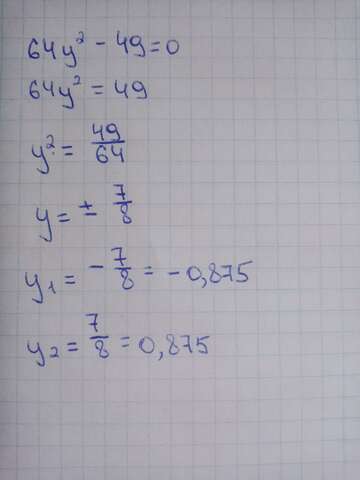 64y² - 49 = 0
64y² = 49
y² = 49/64
y = ± 7/8
y₁ = - 7/8 = - 0,875
y₂ = 7/8 = 0,875